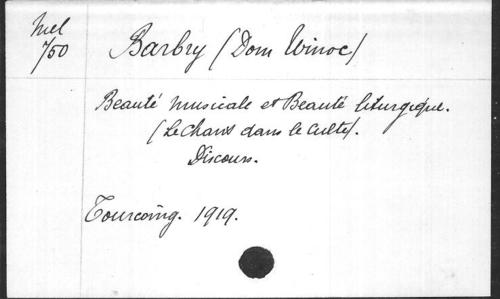 Mel
750
Barbry (Dom Winoc)
Beauté musicale et Beauté liturgique.
(Le Chant dans le Culte).
Discours.
Tourcoing. 1919.